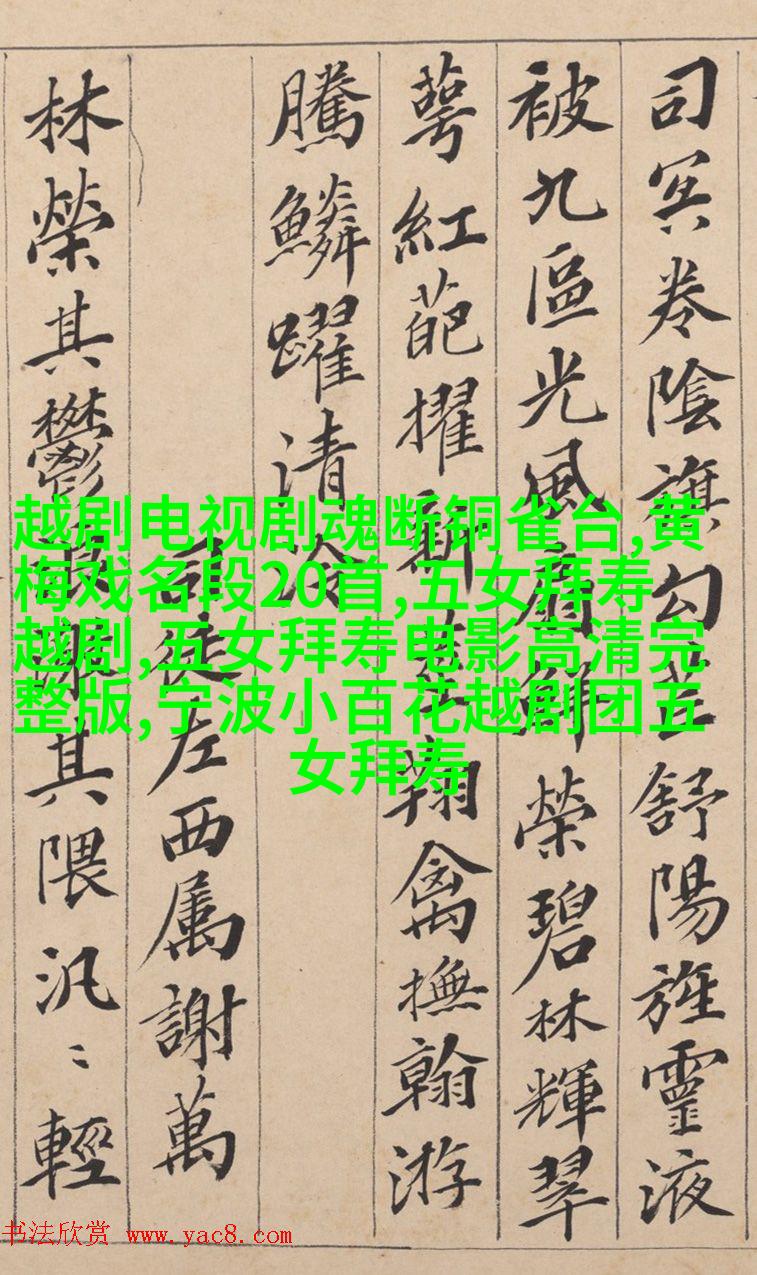 司冥卷陰旗勾芒舒陽旌靈液
被九區光風扇鮮榮碧林輝翠
萼紅葩擢新莖翔禽撫翰游
騰鱗躍清泠
司徒左西属謝萬
林榮其鬱浪激其隈汎〻輕
越剧电视剧魂断铜雀台,黄
梅戏名段20首,五女拜寿
越剧,五女拜寿电影高清完
整版,宁波小百花越剧团五
女拜寿
书法欣赏 www.yac8.com